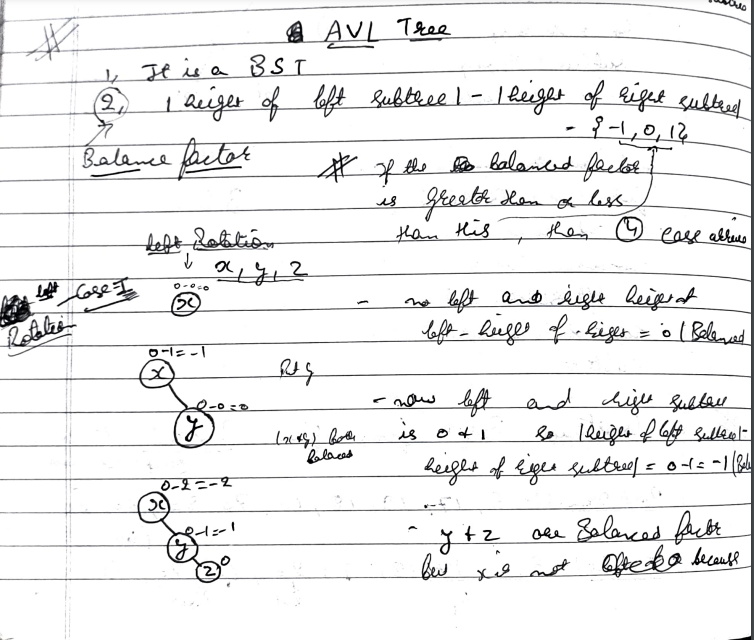 AVL Tree
1, It is a BST
2, | heiger of left subtree | - | height of right subtree |
= {-1, 0, 1}
Balance factor
# if the balanced factor
is greater than or less
than this, then 4 case arrive
left Rotation
x, y, z
left Case-I
Rotation
0-0=0
x
- no left and right height
left - heigh of right = 0 (Balanced
0-1=-1
x
0-0=0
y
- now left and right subtree
(x & y) both is 0 & 1 so | height of left subtree | -
balanced height of right subtree | = 0-1 = -1 (Bala
0-2=-2
x
0-1=-1
y
z 0
- y & z are Balanced factor
but x is not because